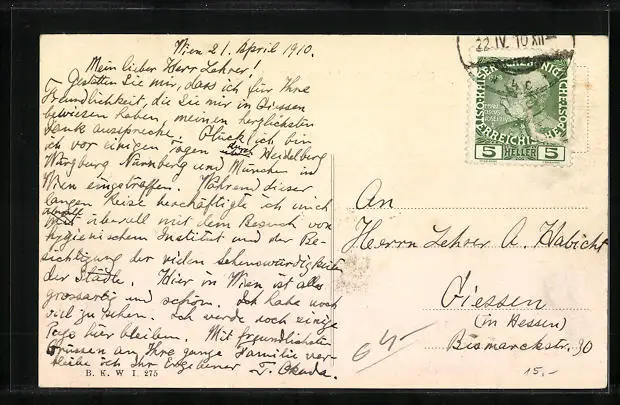 Wien 21. April 1910.
Mein lieber Herr Lehrer!
Gestatten Sie mir, dass ich für Ihre
Freundlichkeit, die Sie mir in Giessen
bewiesen haben, meinen herzlichsten
Dank ausspreche. Glücklich bin
ich vor einigen Tagen durch Heidelberg
Würzburg Nürnberg und München in
Wien eingetroffen. Während dieser
langen Reise beschäftigte ich mich
überall mit dem Besuch von
hygienischem Institut und der Be-
sichtigung der vielen Sehenswürdigkeiten
der Städte. Hier in Wien ist alles
grossartig und schön. Ich habe noch
viel zu sehen. Ich werde noch einige
Tage hier bleiben. Mit freundlichsten
Grüssen an Ihre ganze Familie ver-
bleibe ich Ihr Ergebener T. Okuda.
B. K. W. I. 275
22 IV. 10 XII
1908
5 HELLER 5
An
Herrn Lehrer A. Habicht
Giessen
(in Hessen)
Bismarckstr. 30
15,-